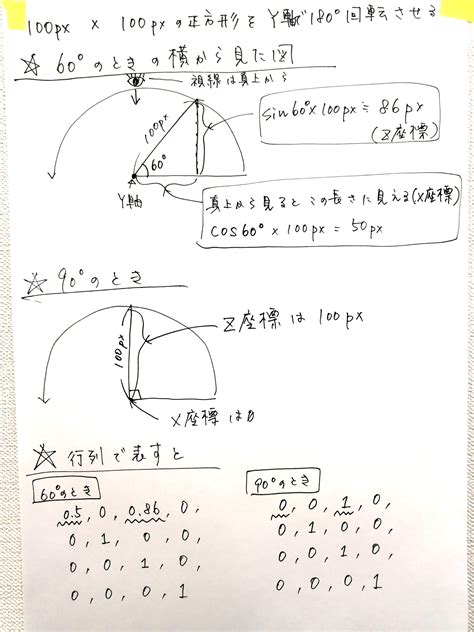 100px × 100pxの正方形を Y軸で180°回転させる
☆ 60°のときの横から見た図
視線は真上から
100px
60°
Y軸
sin60°×100px≒86px
(Z座標)
真上から見るとこの長さに見える(X座標)
cos60°×100px=50px
☆ 90°のとき
100px
Z座標は100px
X座標は0
☆ 行列で表すと
60°のとき
0.5, 0, 0.86, 0,
0, 1, 0, 0,
0, 0, 1, 0,
0, 0, 0, 1
90°のとき
0, 0, 1, 0,
0, 1, 0, 0,
0, 0, 1, 0,
0, 0, 0, 1